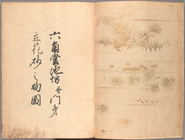 六角堂池坊并門弟
立花砂之物圖